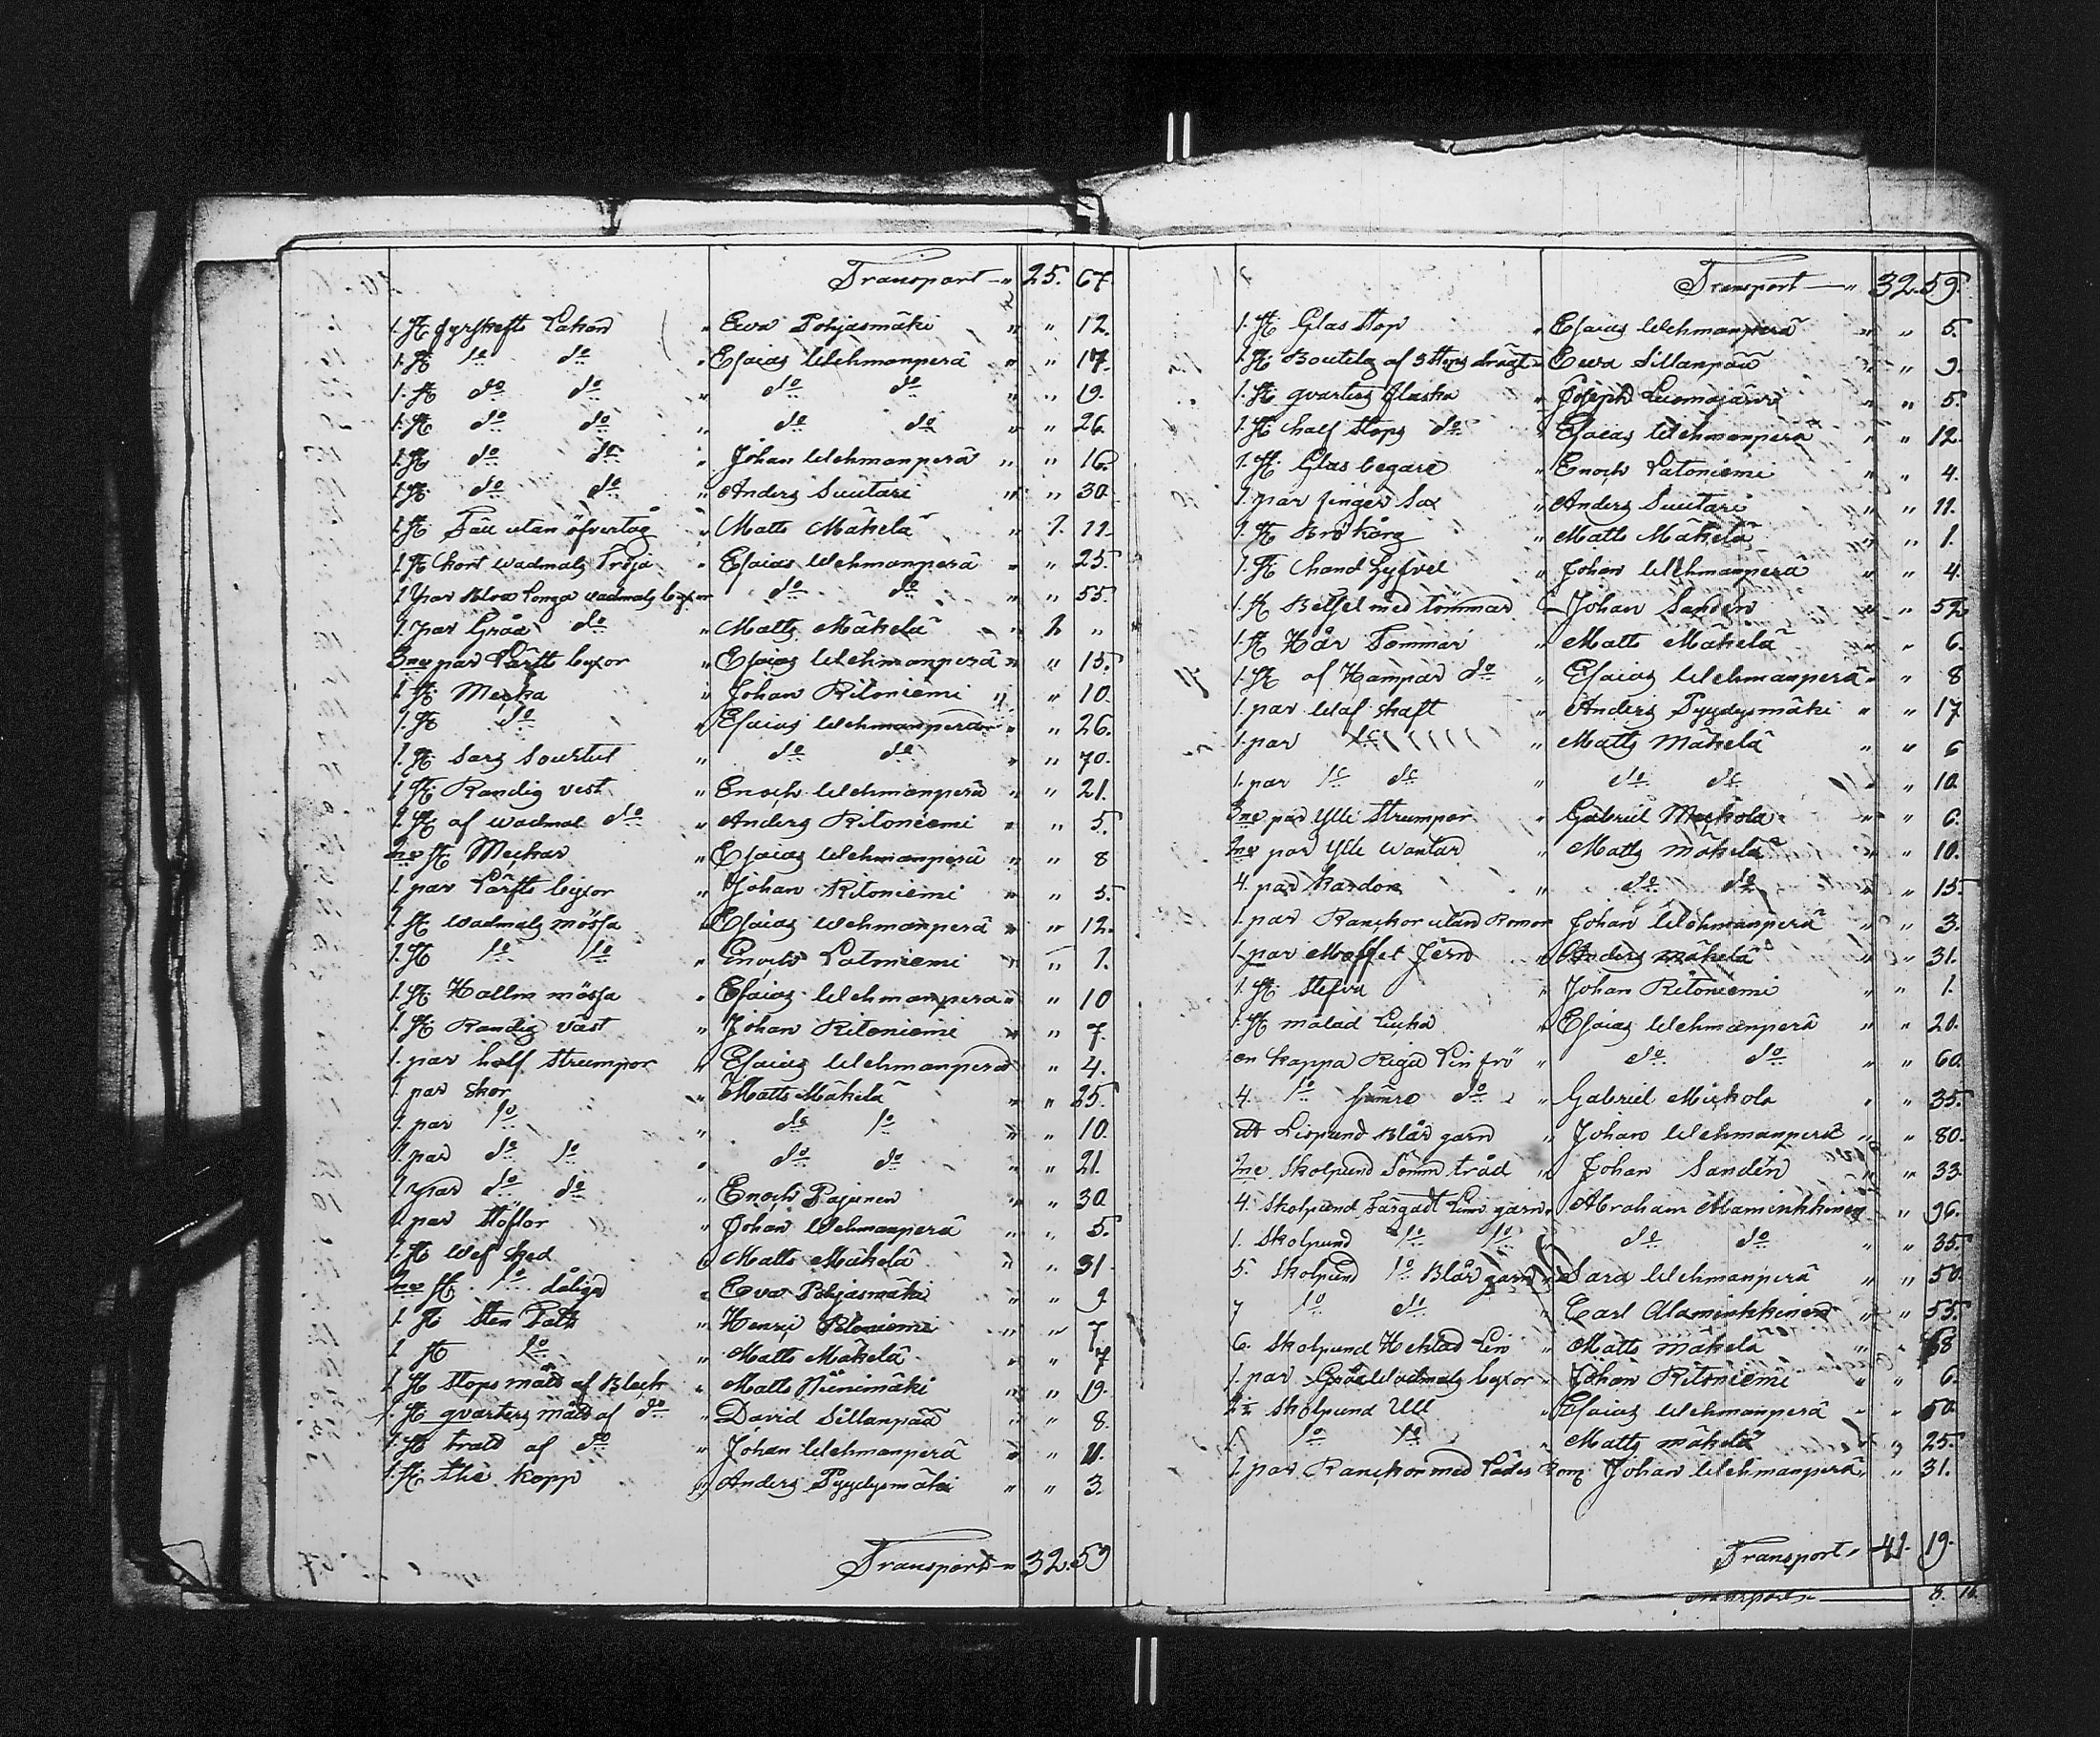 Transport — " 25. 67.
1. St fyrskefts Lakan " Ewa Pohjasmäki " " 12.
1. St do do " Esaias Wehmanperä " " 17.
1. St do do " do do " " 19.
1. St do do " do do " " 26.
1. St do do " Johan Wehmanperä " " 16.
1. St do do " Anders Suutari " " 30.
1. St utan öfvertåg " Matts Mäkelä " 1. 11.
1. St kort wadmals Tröja " Esaias Wehmanperä " " 25.
1 par Blåa långa wadmals byxor do do " " 55.
1. par Gråa do " Matts Mäkelä " 1 "
3ne par Lärfts byxor " Esaias Wehmanperä " " 15.
1. St Mecka " Johan Ritoniemi " " 10.
1. St do " Esaias Wehmanperä " " 26.
1. St Sars Sourtut " do do " " 70.
1 St Randig vest " Enoch Wehmanperä " " 21.
1. St af wadmal do " Anders Ritoniemi " " 5.
2ne St Meckar " Esaias Wehmanperä " " 8
1. par Lärfts byxor " Johan Ritoniemi " " 5.
1. St wadmals mössa " Esaias Wehmanperä " " 12.
1. St do do " Enoch Latoniemi " " 1.
1. St mössa " Esaias Wehmanperä " " 10
1. St Randig väst " Johan Ritoniemi " " 7.
1. par half strumpor " Esaias Wehmanperä " 4.
1. par skor " Matts Mäkelä " " 25.
1. par do " do do " " 10.
1. par do do " do do " " 21.
1 par do do " Enoch Pajunen " " 30
1. par Töflor " Johan Wehmanperä " " 5.
1. St Wef sked " Matts Mäkelä " " 31.
2ne St do dåliga " Eva Pohjasmäki " " 9.
1. St Sten Fath " Henric Ritoniemi " " 7
1 St do " Matts Mäkelä " " 7
1. St stops mått af Bleck " Matts Niinimäki " " 19.
1. St qvarters mått af do " David Sillanpää " " 8.
1. St tratt af do " Johan Wehmanperä " " 11.
1. St the kopp " Anders Pyydysmäki " " 3.
Transport — " 32. 59
Transport — " 32. 59.
1. St Glas Stop " Esaias Wehmanperä " " 5.
1. St Boutelg af 3 Stops drägt " Ewa Sillanpää " " 9.
1. St qvarters flaska " Joseph Luomajärvi " " 5.
1. St half stops do " Esaias Wehmanperä " " 12.
1. St Glas begare " Enoch Latoniemi " " 4.
1. par finger Sax " Anders Suutari " " 11.
1. St Brö kårg " Matts Mäkelä " " 1.
1. St Hand hyfvel " Johan Wehmanperä " " 4.
1. St Betsel med tömmar " Johan Sandén " " 52
1. St Hår Tömmar " Matts Mäkelä " " 6.
1. St af Hampad do " Esaias Wehmanperä " " 8
1. par Waf skaft " Anders Pyydysmäki " " 17
1. par do " Matts Mäkelä " " 6
1. par do do " do do " " 10.
3ne par Ylle Strumpor " Gabriel " " 6.
2ne par Ylle Wantar " Matts Mäkelä " " 10.
4. par Kardor " do do " " 15.
1. par utan Johan Wehmanperä " " 3.
1. par Järn " Anders Mäkelä " " 31.
1. St Stefva " Johan Ritoniemi " " 1.
1. St målad " Esaias Wehmanperä " " 20.
en kappa Riga Lin frö " do do " " 60.
4. do sämre do " Gabriel " " 35.
Ett Lispund Blår garn " Johan Wehmanperä " " 80.
2ne Skolpund Sömm tråd " Johan Sandén " " 33.
4. Skolpund Färgadt Linn garn " Abraham " 96.
1. Skolpund do do " do do " " 35.
5. Skolpund do Blår garn " Sara Wehmanperä " " 50.
7 do do " Carl " " 55.
6. Skolpund Hecklad Lin " Matts Mäkelä " " 68
1. par Gråa Wadmals byxor " Johan Ritoniemi " " 6.
Skolpund Ull " Esaias Wehmanperä " " 50.
1. do do " Matts Mäkelä " " 25.
1. par med Läder Johan Wehmanperä " " 31.
Transport " 41. 19.
8. 16.